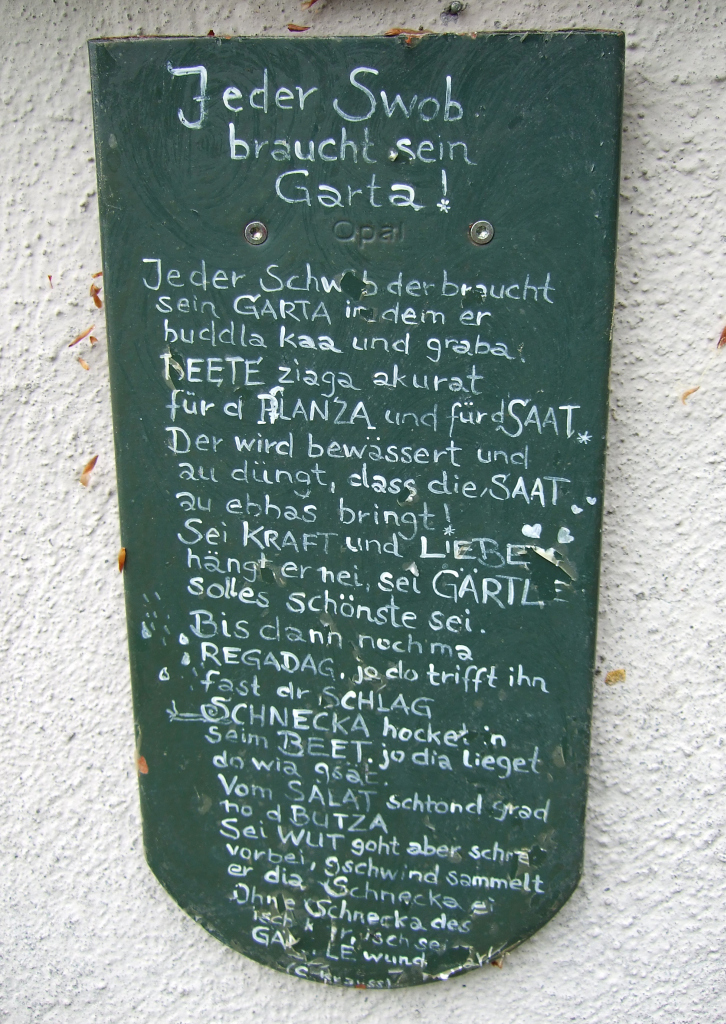 Jeder Swob
braucht sein
Garta!
Opal
Jeder Schwob der braucht
sein GARTA in dem er
buddla kaa und graba.
BEETE ziaga akurat
für d PLANZA und für d SAAT.
Der wird bewässert und
au düngt, dass die SAAT
au ebbas bringt!
Sei KRAFT und LIEBE
hängt er nei, sei GÄRTLE
solles schönste sei.
Bis dann noch ma
REGADAG, jo do trifft ihn
fast dr SCHLAG
SCHNECKA hocket in
seim BEET. jo dia lieget
do wia gsät.
Vom SALAT schtond grad
no d BUTZA
Sei WUT goht aber
vorbei, gschwind sammelt
er dia Schnecka ei
Ohne Schnecka des
isch
LE wund